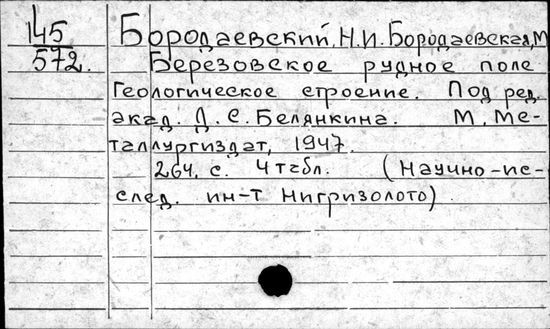 145
572.
Бородаевский, Н.И. Бородаевская, М
Березовское рудное поле
Геологическое строение. Под ред.
акад. Д. С. Белянкина. М. Ме-
таллургиздат, 1947.
264. с. 4 табл. (Научно-ис-
след. ин-т Нигризолото).